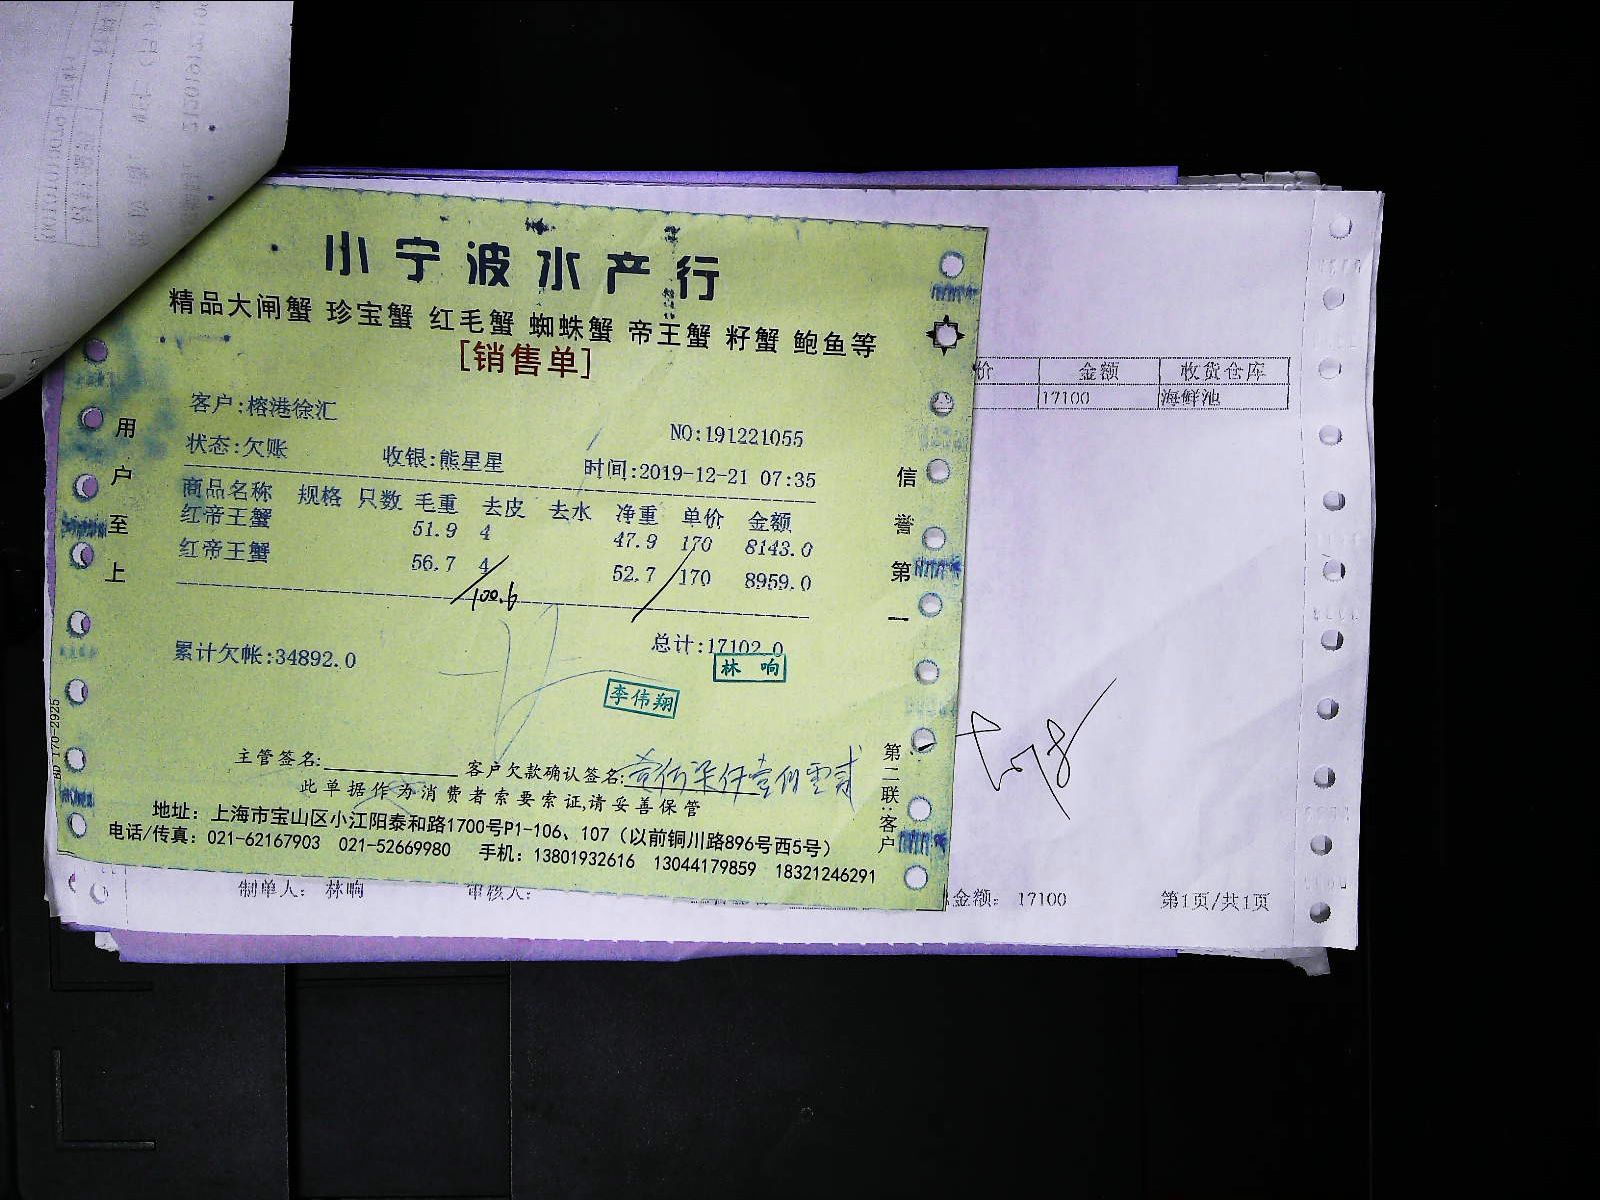 小宁波水产行
精品大闸蟹 珍宝蟹 红毛蟹 蜘蛛蟹 帝王蟹 籽蟹 鲍鱼等
[销售单]
客户:榕港徐汇
NO:191221055
状态:欠账 收银:熊星星 时间:2019-12-21 07:35
商品名称 规格 只数 毛重 去皮 去水 净重 单价 金额
红帝王蟹 51.9 4 47.9 170 8143.0
红帝王蟹 56.7 4 52.7 170 8959.0
100.6
累计欠帐:34892.0 总计:17102.0
林响
李伟翔
主管签名: 客户欠款确认签名:
此单据作为消费者索要索证,请妥善保管
地址：上海市宝山区小江阳泰和路1700号P1-106、107（以前铜川路896号西5号）
电话/传真：021-62167903 021-52669980 手机：13801932616 13044179859 18321246291
用户至上
信誉第一
第二联:客户
HD 170-2925
价 金额 收货仓库
17100 海鲜池
制单人： 林响 审核人： 金额： 17100 第1页/共1页